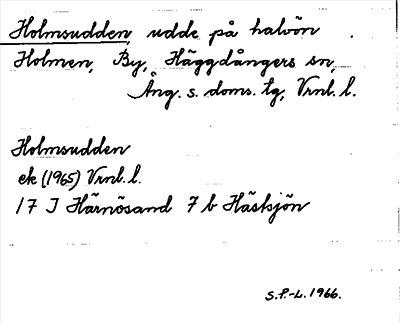 Holmsudden, udde på halvön
Holmen, By, Häggdångers sn,
Ång. s. doms. tg, Vrnl. l.
Holmsudden
ek (1965) Vrnl. l.
17 J Härnösand 7 b Hästsjön
S.P.-L. 1966.